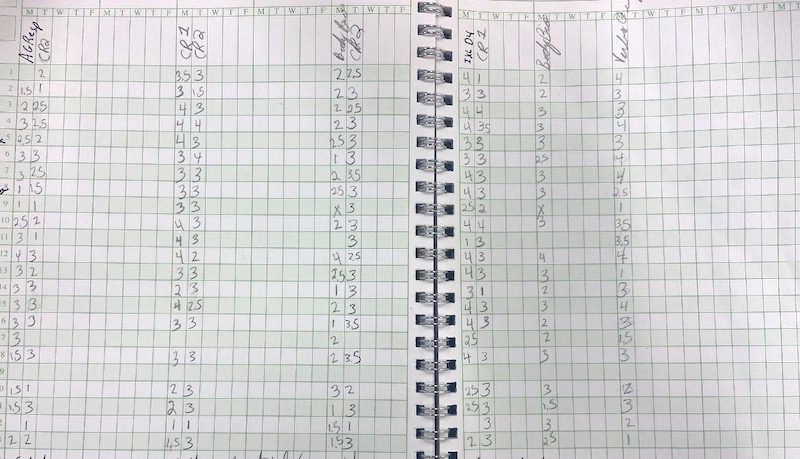 M T W T F M T W T F M T W T F M T W T F M T W T F M T W T F M T W T F
CR2 CR 1 CR2 CR2 CR 1
1 2 3.5 3 2 2.5 4 1 2 4
2 1.5 1 3 1.5 2 3 3 3 2 3
3 2 2.5 4 3 2 2.5 4 4 3 3
4 3 2.5 4 4 2 3 4 3.5 3 4
5 2.5 2 4 3 2.5 3 3 3 3 3
6 3 3 3 4 1 3 3 3 2.5 4
7 3 2.5 3 3 2 3.5 4 3 3 4
8 1 1.5 3 3 2.5 3 4 3 3 2.5
9 1 1 3 3 x 3 2.5 2 x 1
10 2.5 2 4 3 2 3 4 4 3 3.5
11 3 1 4 3 3 1 3 3.5
12 4 3 4 2 4 2.5 4 3 4 4
13 3 2 3 3 2.5 3 4 3 3 1
14 3 3 2 3 1 3 3 1 2 3
15 3 3 4 2.5 2 3 4 3 3 4
16 3 3 3 3 1 3.5 4 3 2 3
17 3 2 2.5 2 1.5
18 1.5 3 3 3 2 3.5 4 3 3 3
1.5 1 2 3 3 2 2.5 3 3 2
1.5 3 2 3 1 3 2.5 3 1.5 3
1 1 1 1.5 1 3 3 2
2 2 1.5 3 1.5 3 2 3 2.5 1